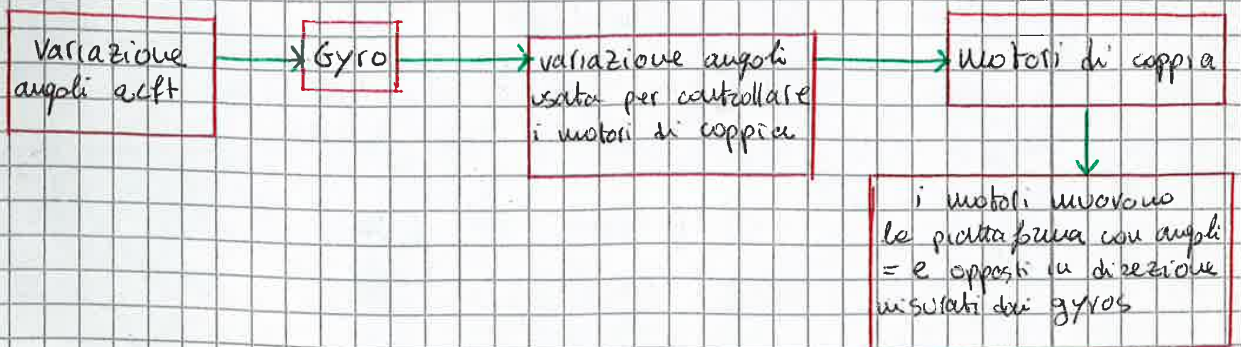 variazione
angoli acft
Gyro
variazione angoli
usata per controllare
i motori di coppia
motori di coppia
i motori muovono
la piattaforma con angoli
= e opposti in direzione
misurati dai gyros